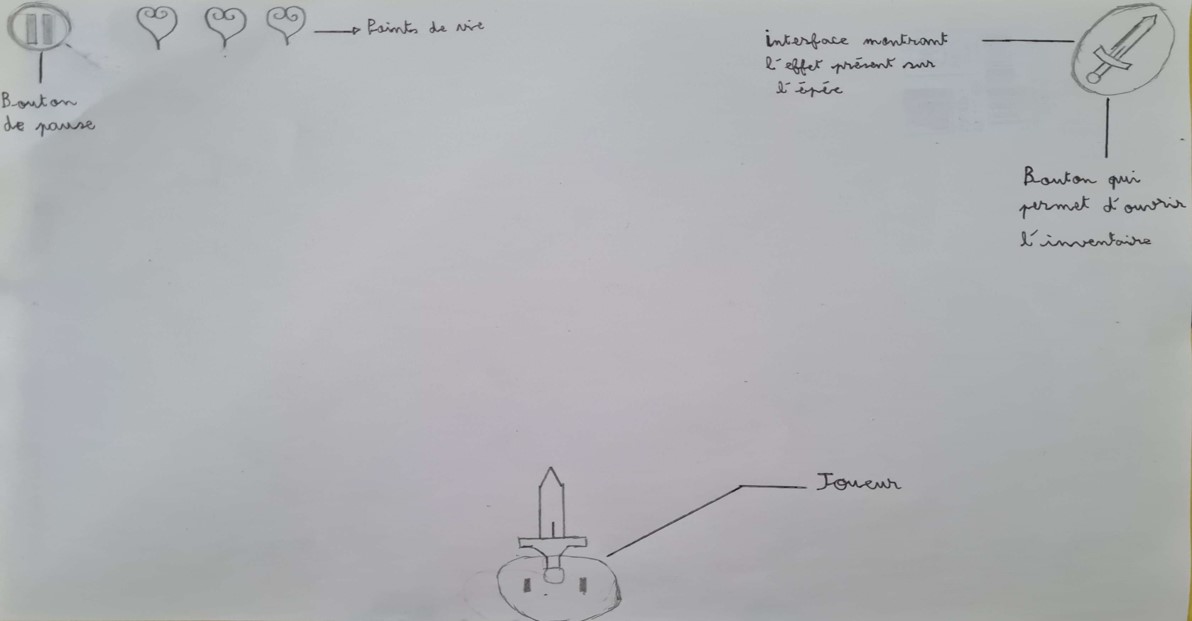 Points de vie
Bouton
de pause
interface montrant
l'effet présent sur
l'épée
Bouton qui
permet d'ouvrir
l'inventaire
Joueur